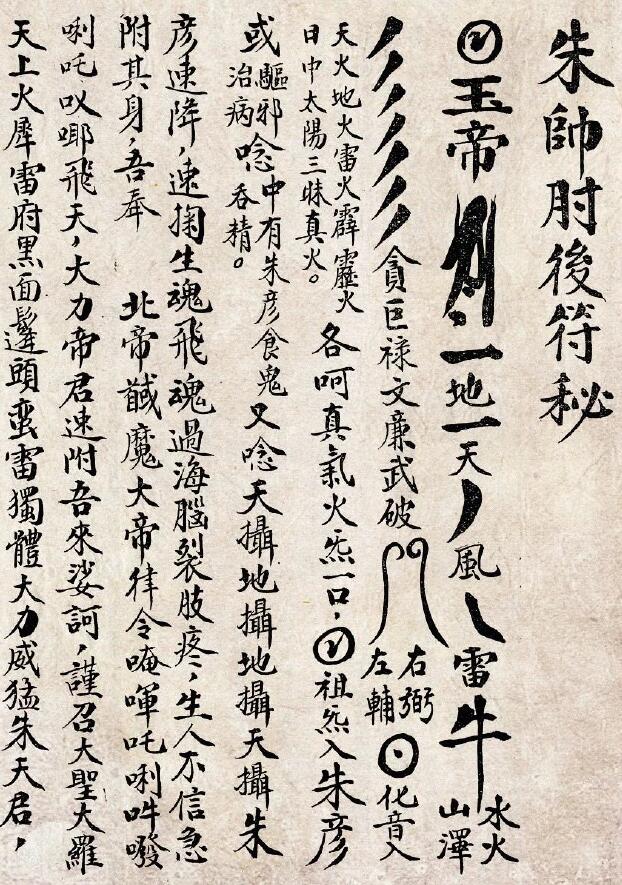 朱帥肘後符秘
玉帝 一地一天丿風乀雷牛 水火山澤
貪巨禄文廉武破 右弼左輔 化音入
天火地火雷火霹靂火日中太陽三昧真火。各呵真氣火炁一口，祖炁入朱彦
或驅邪治病唸中有朱彦食鬼吞精。又唸天攝地攝地攝天攝朱
彦速降，速掬生魂飛魂過海腦裂肢疼，生人不信急
附其身，吾奉 北帝馘魔大帝律令唵㖶吒唎吽啜
唎吒㕥㖿飛天，大力帝君速附吾來娑訶，謹召大聖大羅
天上火犀雷府黑面鬔頭蛮雷獨體大力威猛朱天君，